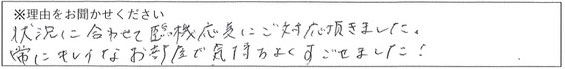 ※理由をお聞かせください
状況に合わせて臨機応変にご対応頂きました。
常にキレイなお部屋で気持ちよくすごせました！